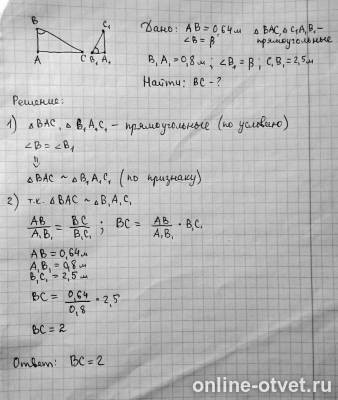 B C₁
A C B₁ A₁
Дано: AB = 0,64 м △BAC, △C₁A₁B₁ -
∠B = β прямоугольные
B₁A₁ = 0,8 м ; ∠B₁ = β ; C₁B₁ = 2,5 м
Найти: BC - ?
Решение:
1) △BAC, △B₁A₁C₁ - прямоугольные (по условию)
∠B = ∠B₁
⇓
△BAC ~ △B₁A₁C₁ (по признаку)
2) т.к. △BAC ~ △B₁A₁C₁
AB/A₁B₁ = BC/B₁C₁ ; BC = AB/A₁B₁ · B₁C₁
AB = 0,64 м
A₁B₁ = 0,8 м
B₁C₁ = 2,5 м
BC = 0,64/0,8 · 2,5
BC = 2
Ответ: BC = 2
online-otvet.ru